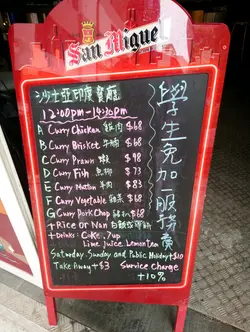 San Miguel
沙士亞印度餐廳
12:00pm-14:30pm
A Curry Chicken 雞肉 $68
B Curry Brisket 牛腩 $68
C Curry Prawn 蝦 $98
D Curry Fish 魚柳 $73
E Curry Mutton 羊肉 $83
F Curry Vegetable 蔬菜 $68
G Curry Pork Chop 豬扒 $68
+Rice or Nan 白飯或薄餅
+Drinks: Coke, 7up
Lime Juice Lemon tea
Saturday Sunday and Public Holiday +$10
Take Away +$3 Service Charge
+10%
學生免加一服務費